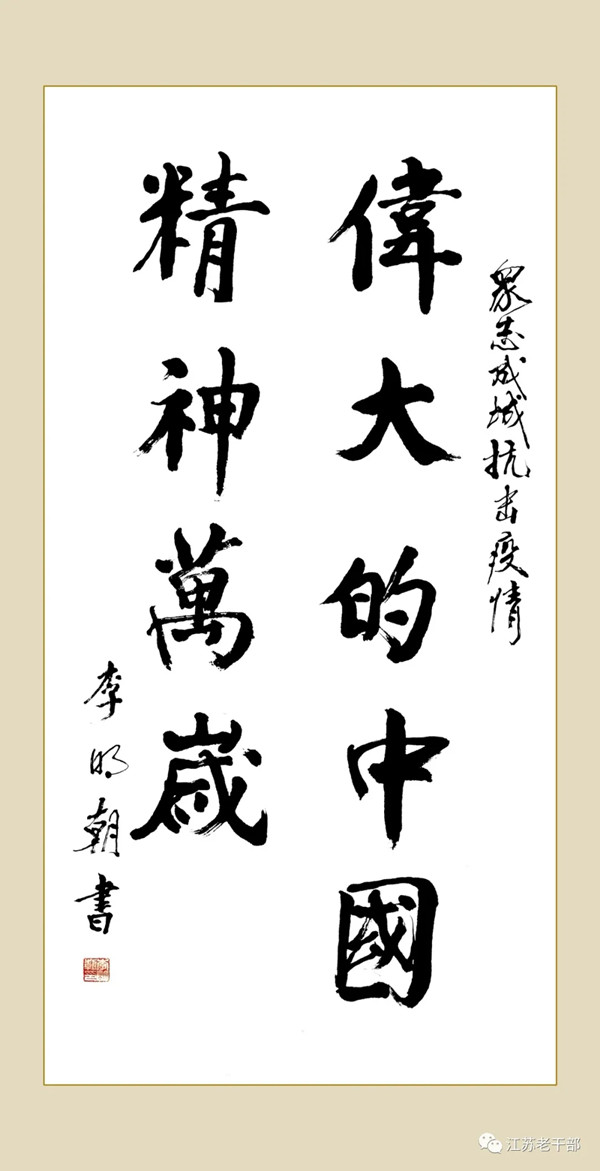 眾志成城抗击疫情
偉大的中國
精神萬歲
李明朝書
江苏老干部